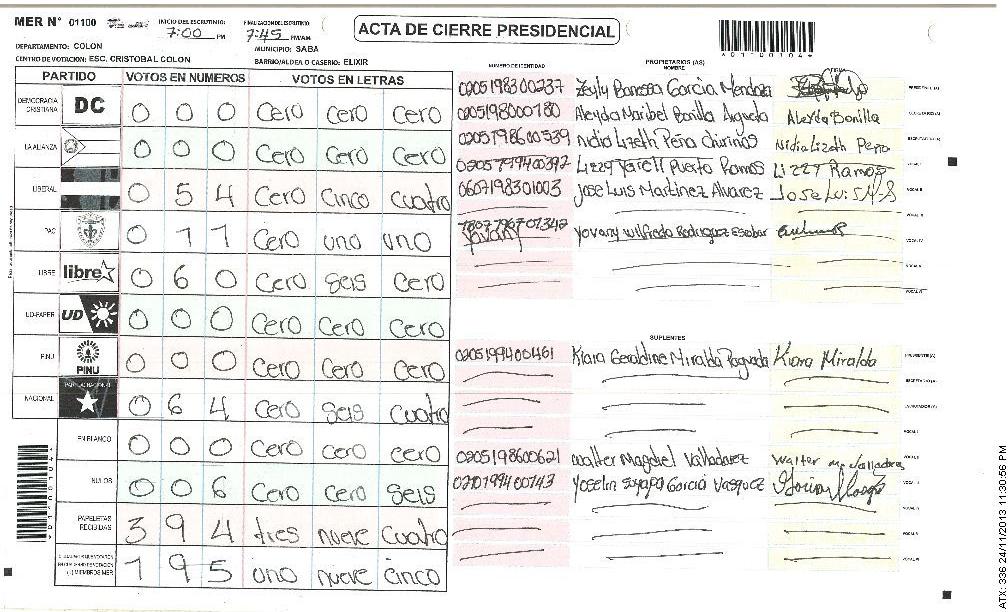 MER N° 01100
INICIO DEL ESCRUTINIO
7:00 PM
FINALIZACION DEL ESCRUTINIO
7:45 PM/AM
ACTA DE CIERRE PRESIDENCIAL
DEPARTAMENTO: COLON
MUNICIPIO: SABA
CENTRO DE VOTACION: ESC. CRISTOBAL COLON
BARRIO/ALDEA O CASERIO: ELIXIR
PARTIDO VOTOS EN NUMEROS VOTOS EN LETRAS
DEMOCRACIA CRISTIANA DC 0 0 0 Cero Cero Cero
LA ALIANZA 0 0 0 Cero Cero Cero
LIBERAL 0 5 4 Cero Cinco Cuatro
PAC 0 1 1 Cero uno uno
LIBRE libre 0 6 0 Cero Seis Cero
UD-FAPER UD 0 0 0 Cero Cero Cero
PINU PINU 0 0 0 Cero Cero Cero
NACIONAL PARTIDO NACIONAL 0 6 4 Cero Seis Cuatro
EN BLANCO 0 0 0 Cero Cero Cero
NULOS 0 0 6 Cero Cero Seis
PAPELETAS RECIBIDAS 3 9 4 tres nueve Cuatro
1 9 5 uno nueve cinco
NUMERO DE IDENTIDAD PROPIETARIOS (AS) NOMBRE FIRMA
0205198300237 Zeyly Banessa Garcia Mendoza PRESIDENTE (A)
0205198000780 Aleyda Maribel Bonilla Agueda Aleyda Bonilla SECRETARIO (A)
0205198600539 Nidia Lizeth Peña Chirinos Nidia Lizeth Peña
0205199400392 Lizzy Yarell Puerto Ramos Lizzy Ramos VOCAL I
0607198301003 Jose Luis Martinez Alvarez VOCAL II
VOCAL III
Yovany Wilfredo Rodriguez Escobar VOCAL IV
VOCAL V
VOCAL VI
SUPLENTES
0205199400461 Kiara Geraldine Miralda Kiara Miralda PRESIDENTE (A)
SECRETARIO (A)
ESCRUTADOR (A)
VOCAL I
0205198600621 Walter Magdiel Valladarez Walter
0210199400143 Yoselin Suyapa Garcia Vasquez
VOCAL V
VOCAL VI
*01100104*
ATX: 336 24/11/2013 11:30:56 PM